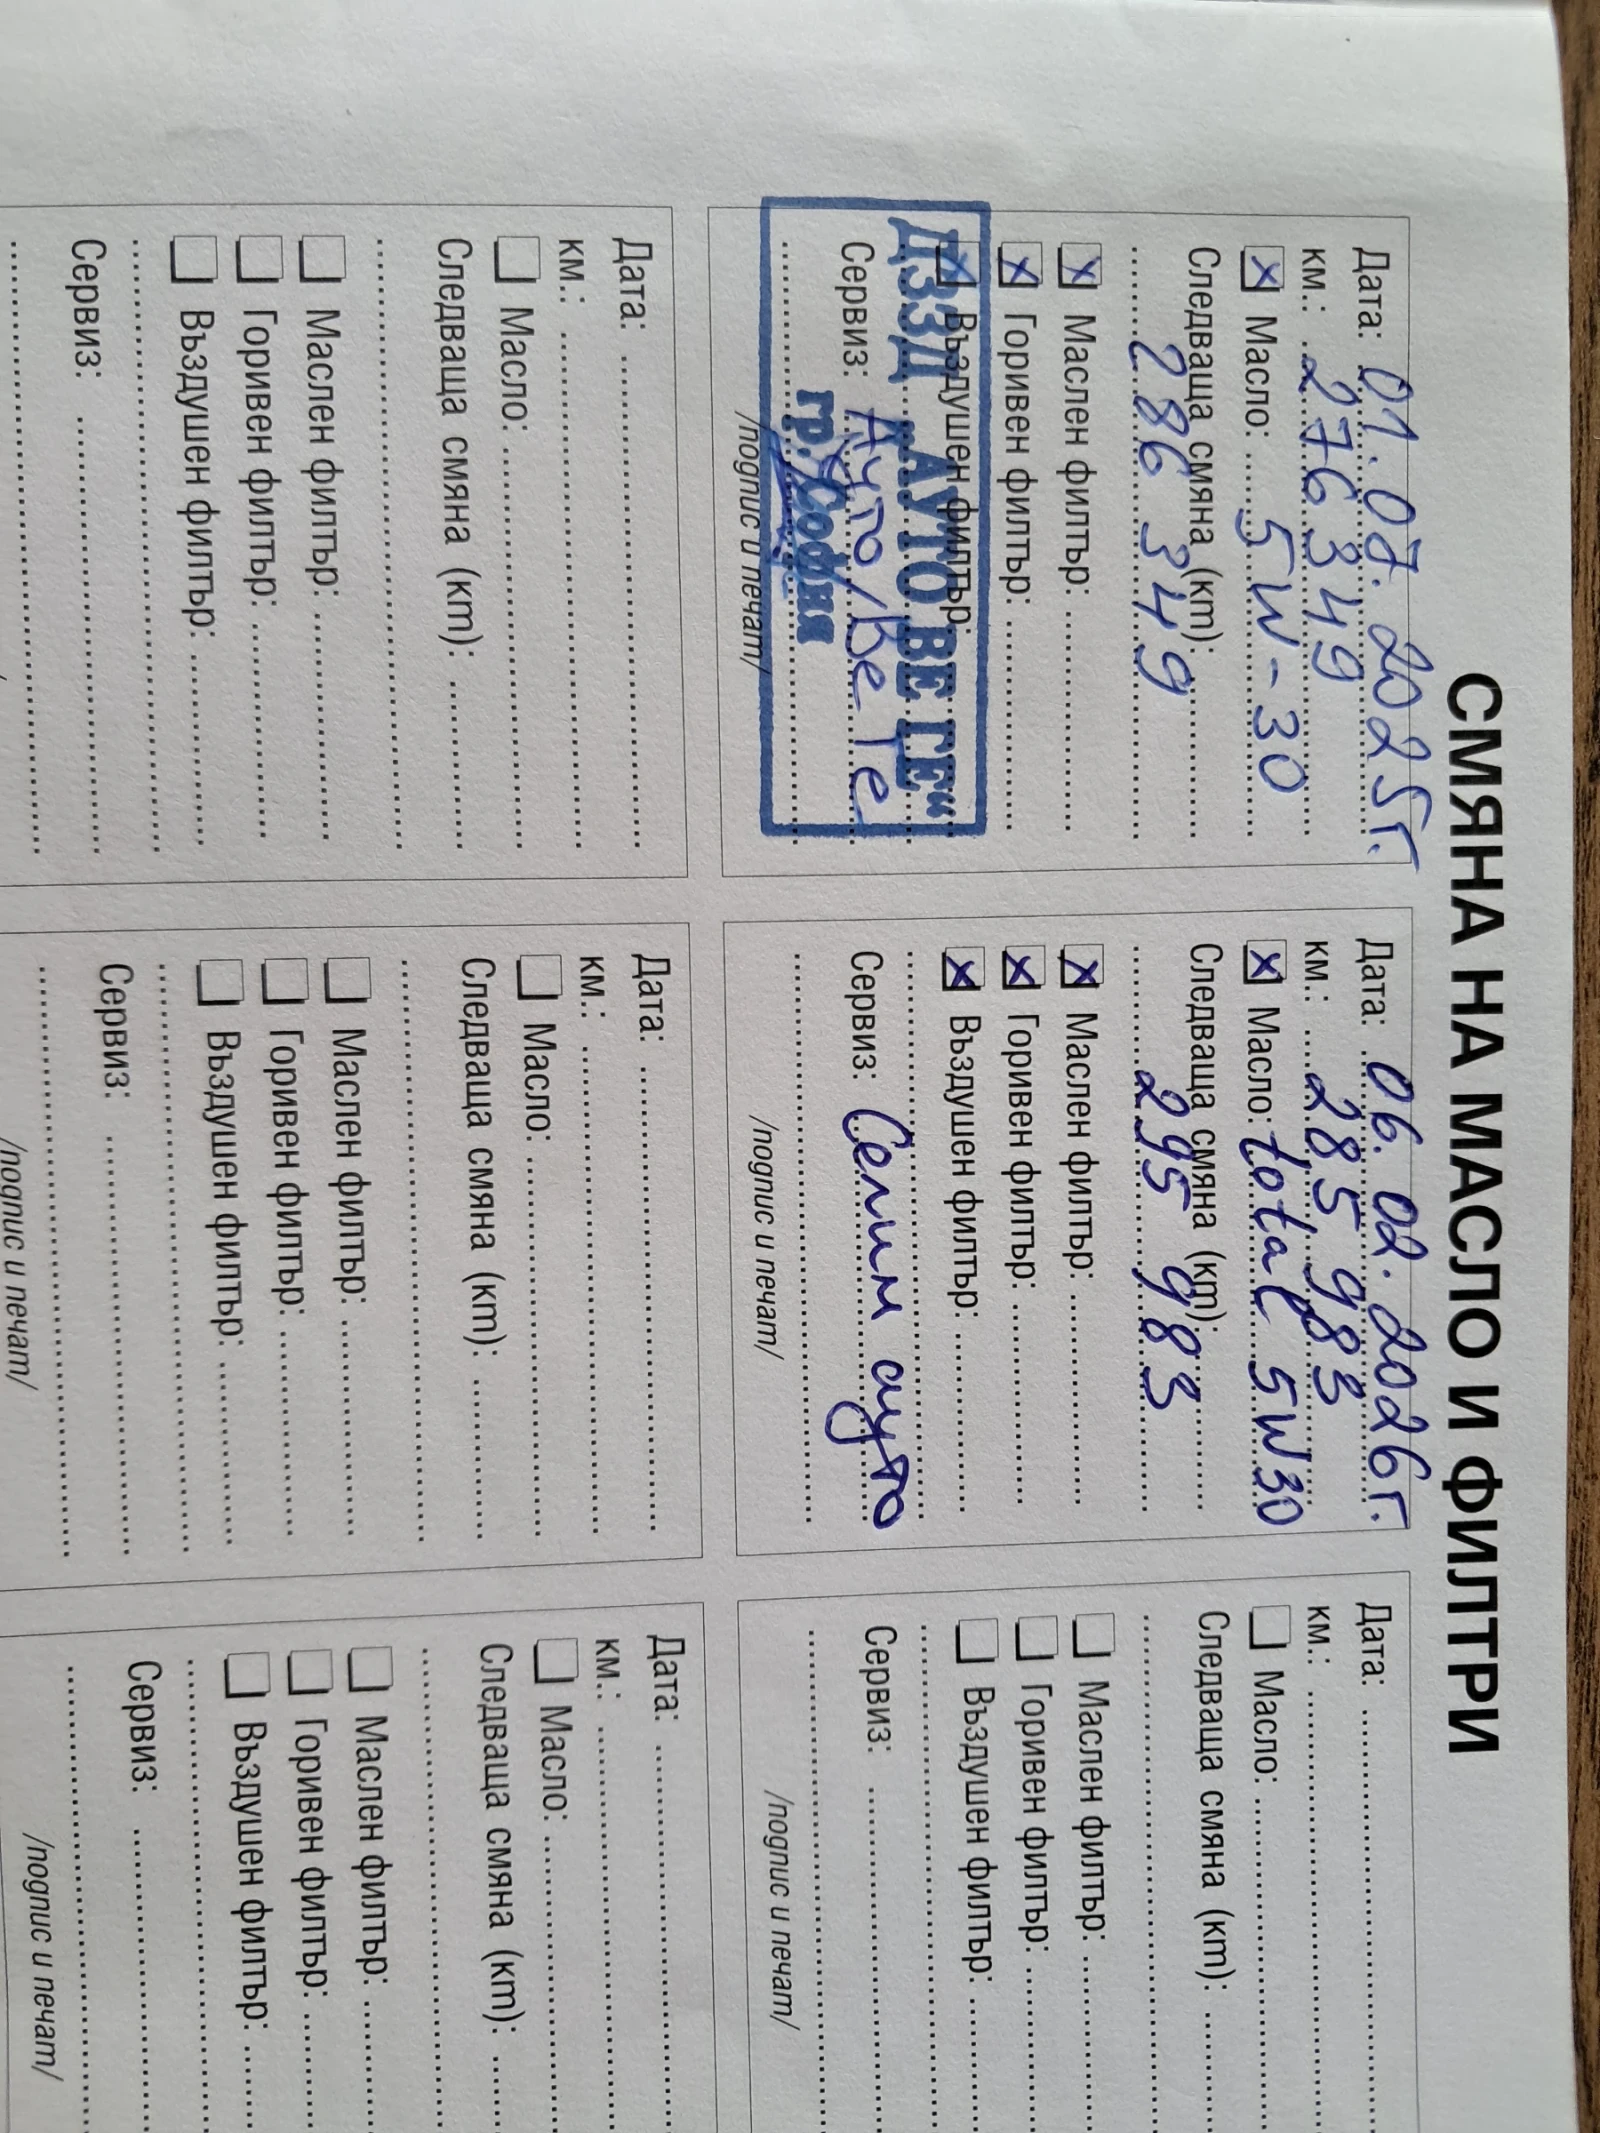 СМЯНА НА МАСЛО И ФИЛТРИ
Дата: 01.07.2025г.
км.: 276349
Масло: 5W-30
Следваща смяна (km):
286 349
Маслен филтър:
Горивен филтър:
Въздушен филтър:
ДЗЗД "АУТО ВЕ ГЕ"
Сервиз: Ауто/Ве Ге
гр. София
/подпис и печат/
Дата: 06.02.2026г.
км.: 285983
Масло: total 5W30
Следваща смяна (km):
295 983
Маслен филтър:
Горивен филтър:
Въздушен филтър:
Сервиз: Селин ауто
/подпис и печат/
Дата:
км.:
Масло:
Следваща смяна (km):
Маслен филтър:
Горивен филтър:
Въздушен филтър:
Сервиз:
/подпис и печат/
Дата:
км.:
Масло:
Следваща смяна (km):
Маслен филтър:
Горивен филтър:
Въздушен филтър:
Сервиз:
Дата:
км.:
Масло:
Следваща смяна (km):
Маслен филтър:
Горивен филтър:
Въздушен филтър:
Сервиз:
/подпис и печат/
Дата:
км.:
Масло:
Следваща смяна (km):
Маслен филтър:
Горивен филтър:
Въздушен филтър:
Сервиз:
/подпис и печат/